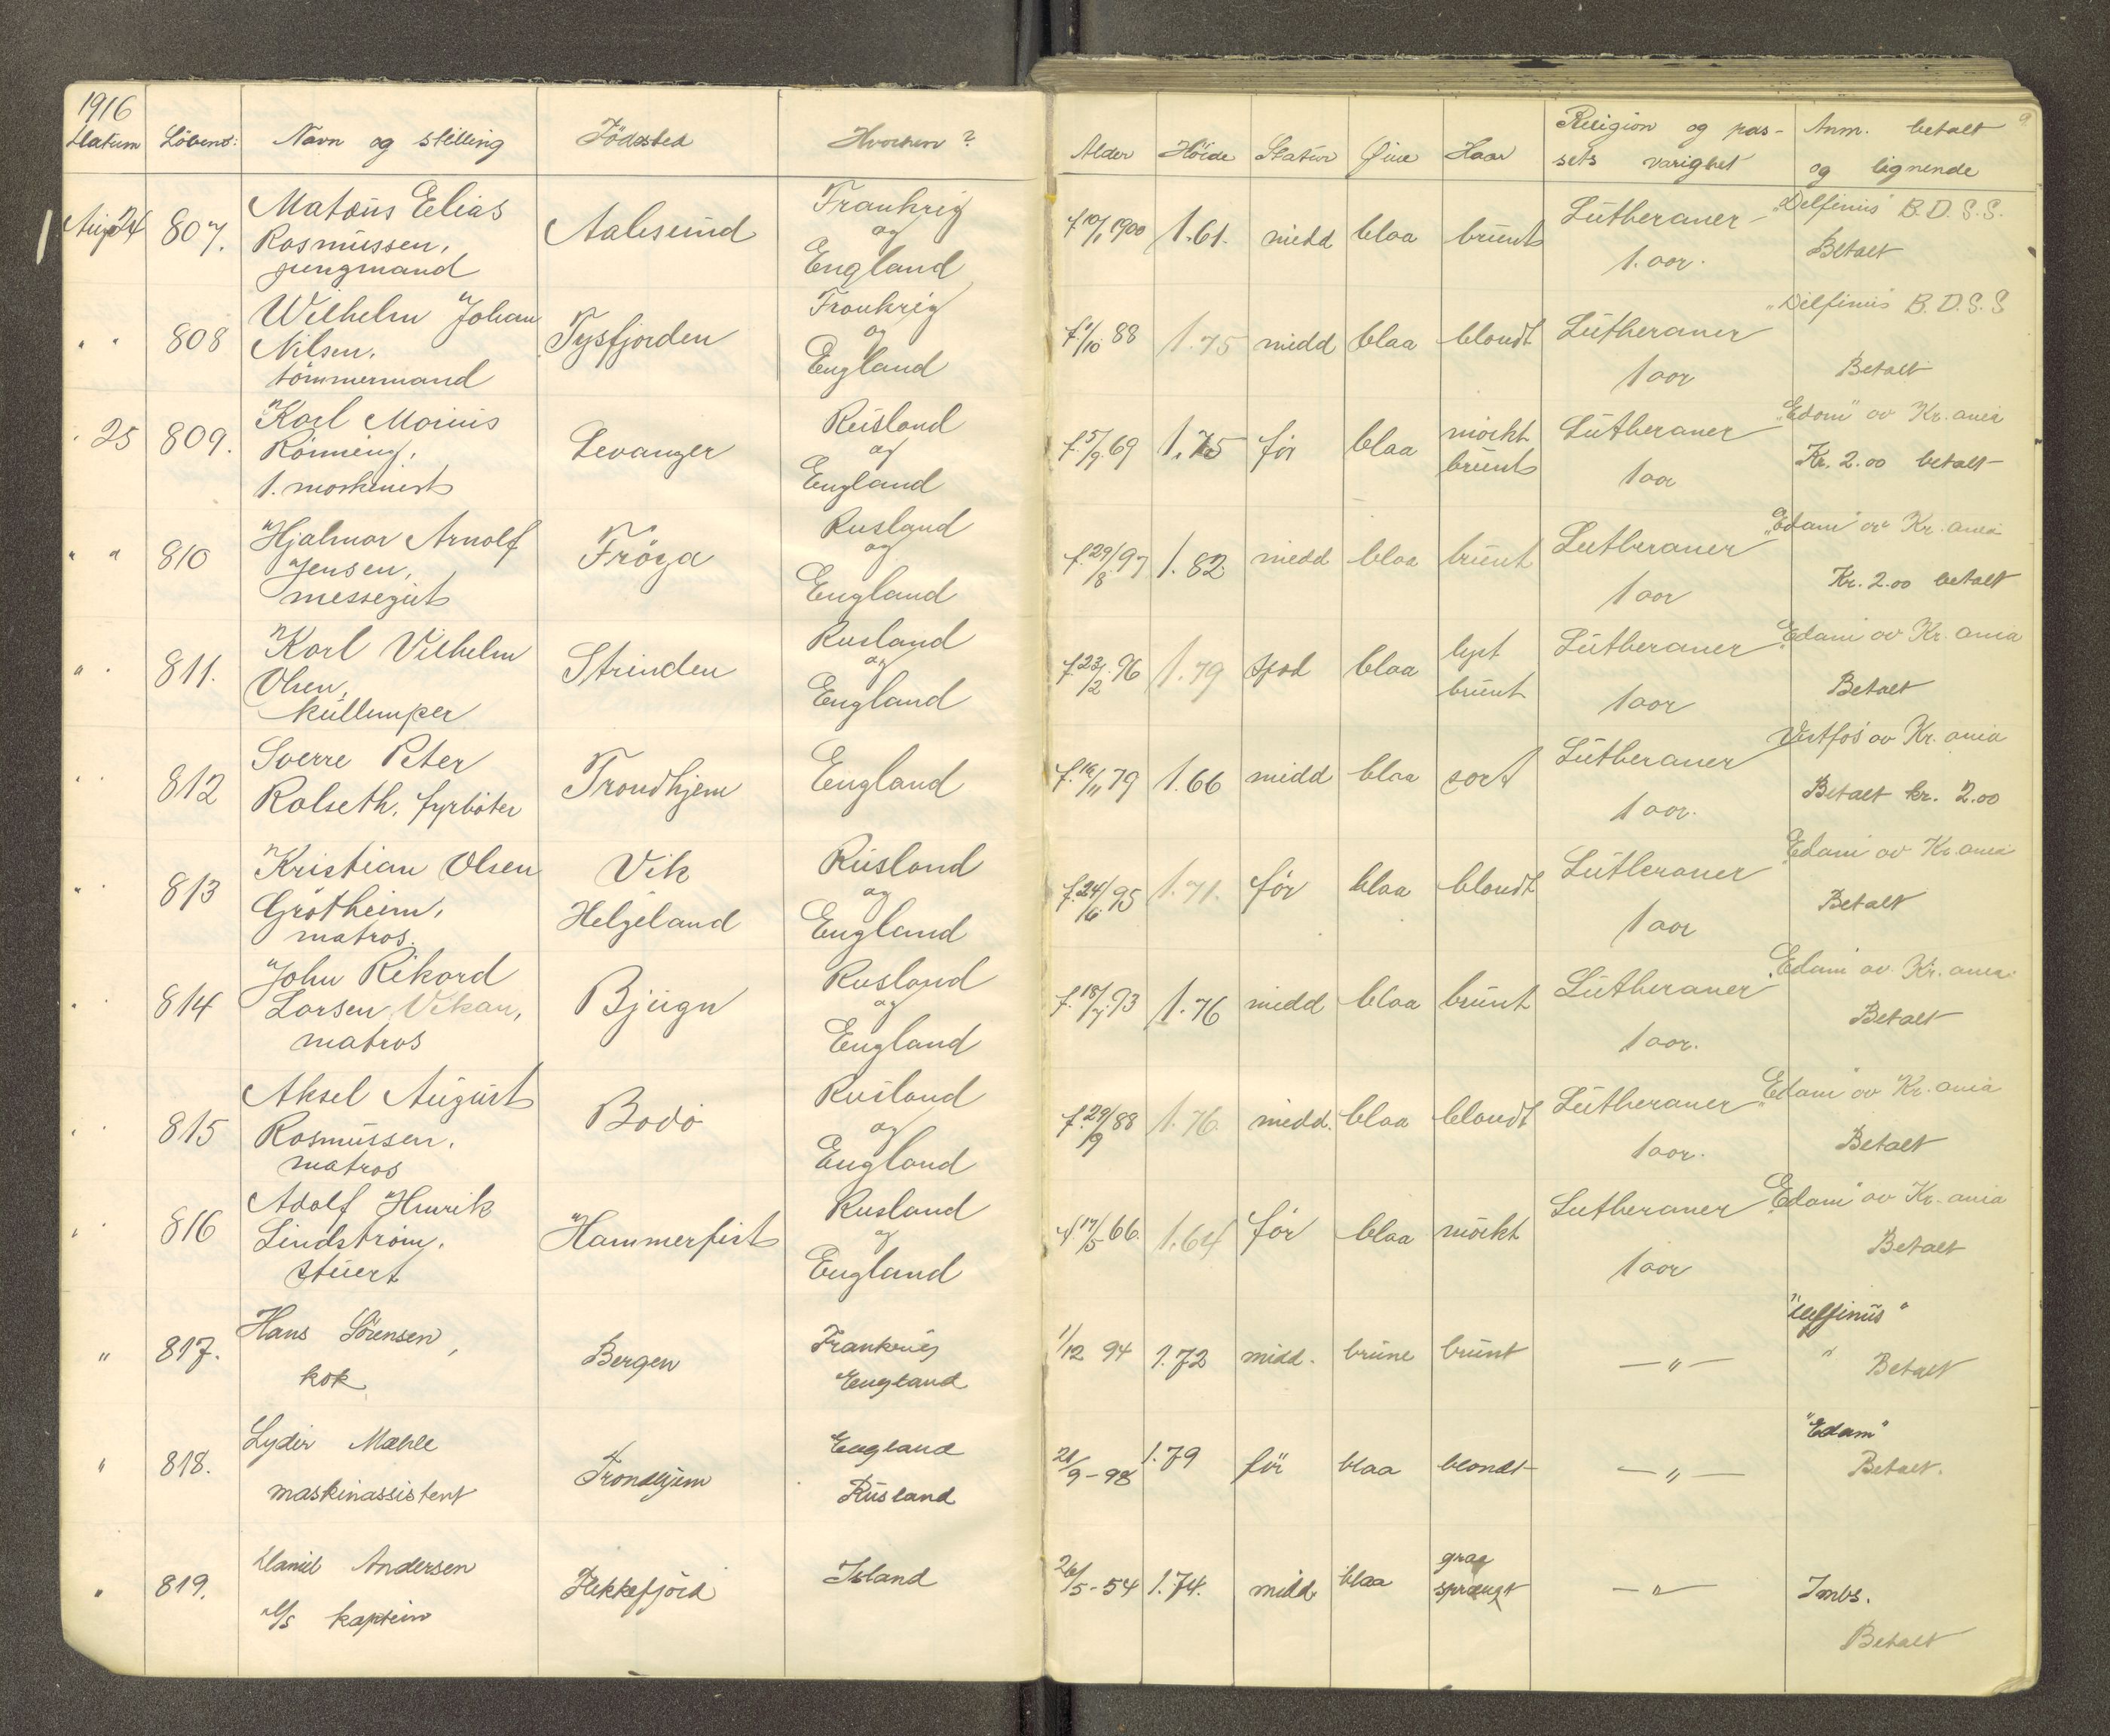 1916
Datum Löbenr: Navn og stilling Födested Hvorhen? Alder Höide Statur Øine Haar Religion og pas- Anm. betalt
sets varighet og lignende
Aug 24 807. Matæus Elias Aalesund Frankrig f 10/1 1900 1.61. midd blaa brunt Lutheraner "Delfinus" B.D.S.S.
Rasmussen, og 1. aar. Betalt
jungmand England
" " 808 Wilhelm Johan Tysfjorden Frankrig f 1/10 88 1.75 midd blaa blondt Lutheraner "Delfinus" B.D.S.S
Nilsen, og 1 aar Betalt
tömmermand England
" 25 809. Karl Marius Levanger Rusland f. 5/9 69 1.75 før blaa mörkt Lutheraner "Edam" av Kr.ania
Rönning, og brunt 1 aar Kr. 2.00 betalt
1. maskinist England
" " 810 Hjalmar Arnolf Fröya Rusland f. 29/8 97 1.82 midd blaa brunt Lutheraner "Edam" av Kr.ania
Jensen, og 1 aar Kr. 2.00 betalt
messegut England
" " 811. Karl Vilhelm Strinden Rusland f. 23/12 96 1.79 spæd blaa lyst Lutheraner "Edam" av Kr.ania
Olsen, og brunt 1 aar Betalt
kullemper England
" " 812 Sverre Peter Trondhjem England f. 16/11 79 1.66 midd blaa sort Lutheraner Vestfos av Kr.ania
Rolseth, fyrböter 1 aar. Betalt kr. 2.00
" " 813 Kristian Olsen Vik Rusland f. 24/6 95 1.71. før blaa blondt Lutheraner "Edam" av Kr.ania
Grötheim, Helgeland og 1 aar Betalt
matros. England
" " 814 John Rikard Bjugn Rusland f. 18/7 93 1.76 midd blaa brunt Lutheraner "Edam" av Kr.ania
Larsen Vikan, og 1 aar. Betalt
matros England
" " 815 Aksel August Bodö Rusland f. 29/9 88 1.76. midd. blaa blondt Lutheraner "Edam" av Kr.ania
Rasmussen, og 1 aar. Betalt
matros England
" " 816 Adolf Henrik Hammerfest Rusland f 17/5 66. 1.64 før blaa mörkt Lutheraner "Edam" av Kr.ania
Lindström, og 1 aar Betalt
stuert England
" 817. Hans Sörensen, Bergen Frankrig 1/12 94 1.72 midd. brune brunt — " — "Delfinus"
kok England " Betalt
" 818. Lyder Mæhle Trondhjem England 28/9 - 98 1.79 för blaa blondt — " — "Edam"
maskinassistent Rusland Betalt.
" 819. Daniel Andersen Flekkefjord Island 26/5 - 54 1.74. midd. blaa graa — " — Imbs.
s/s kaptein sprængt Betalt